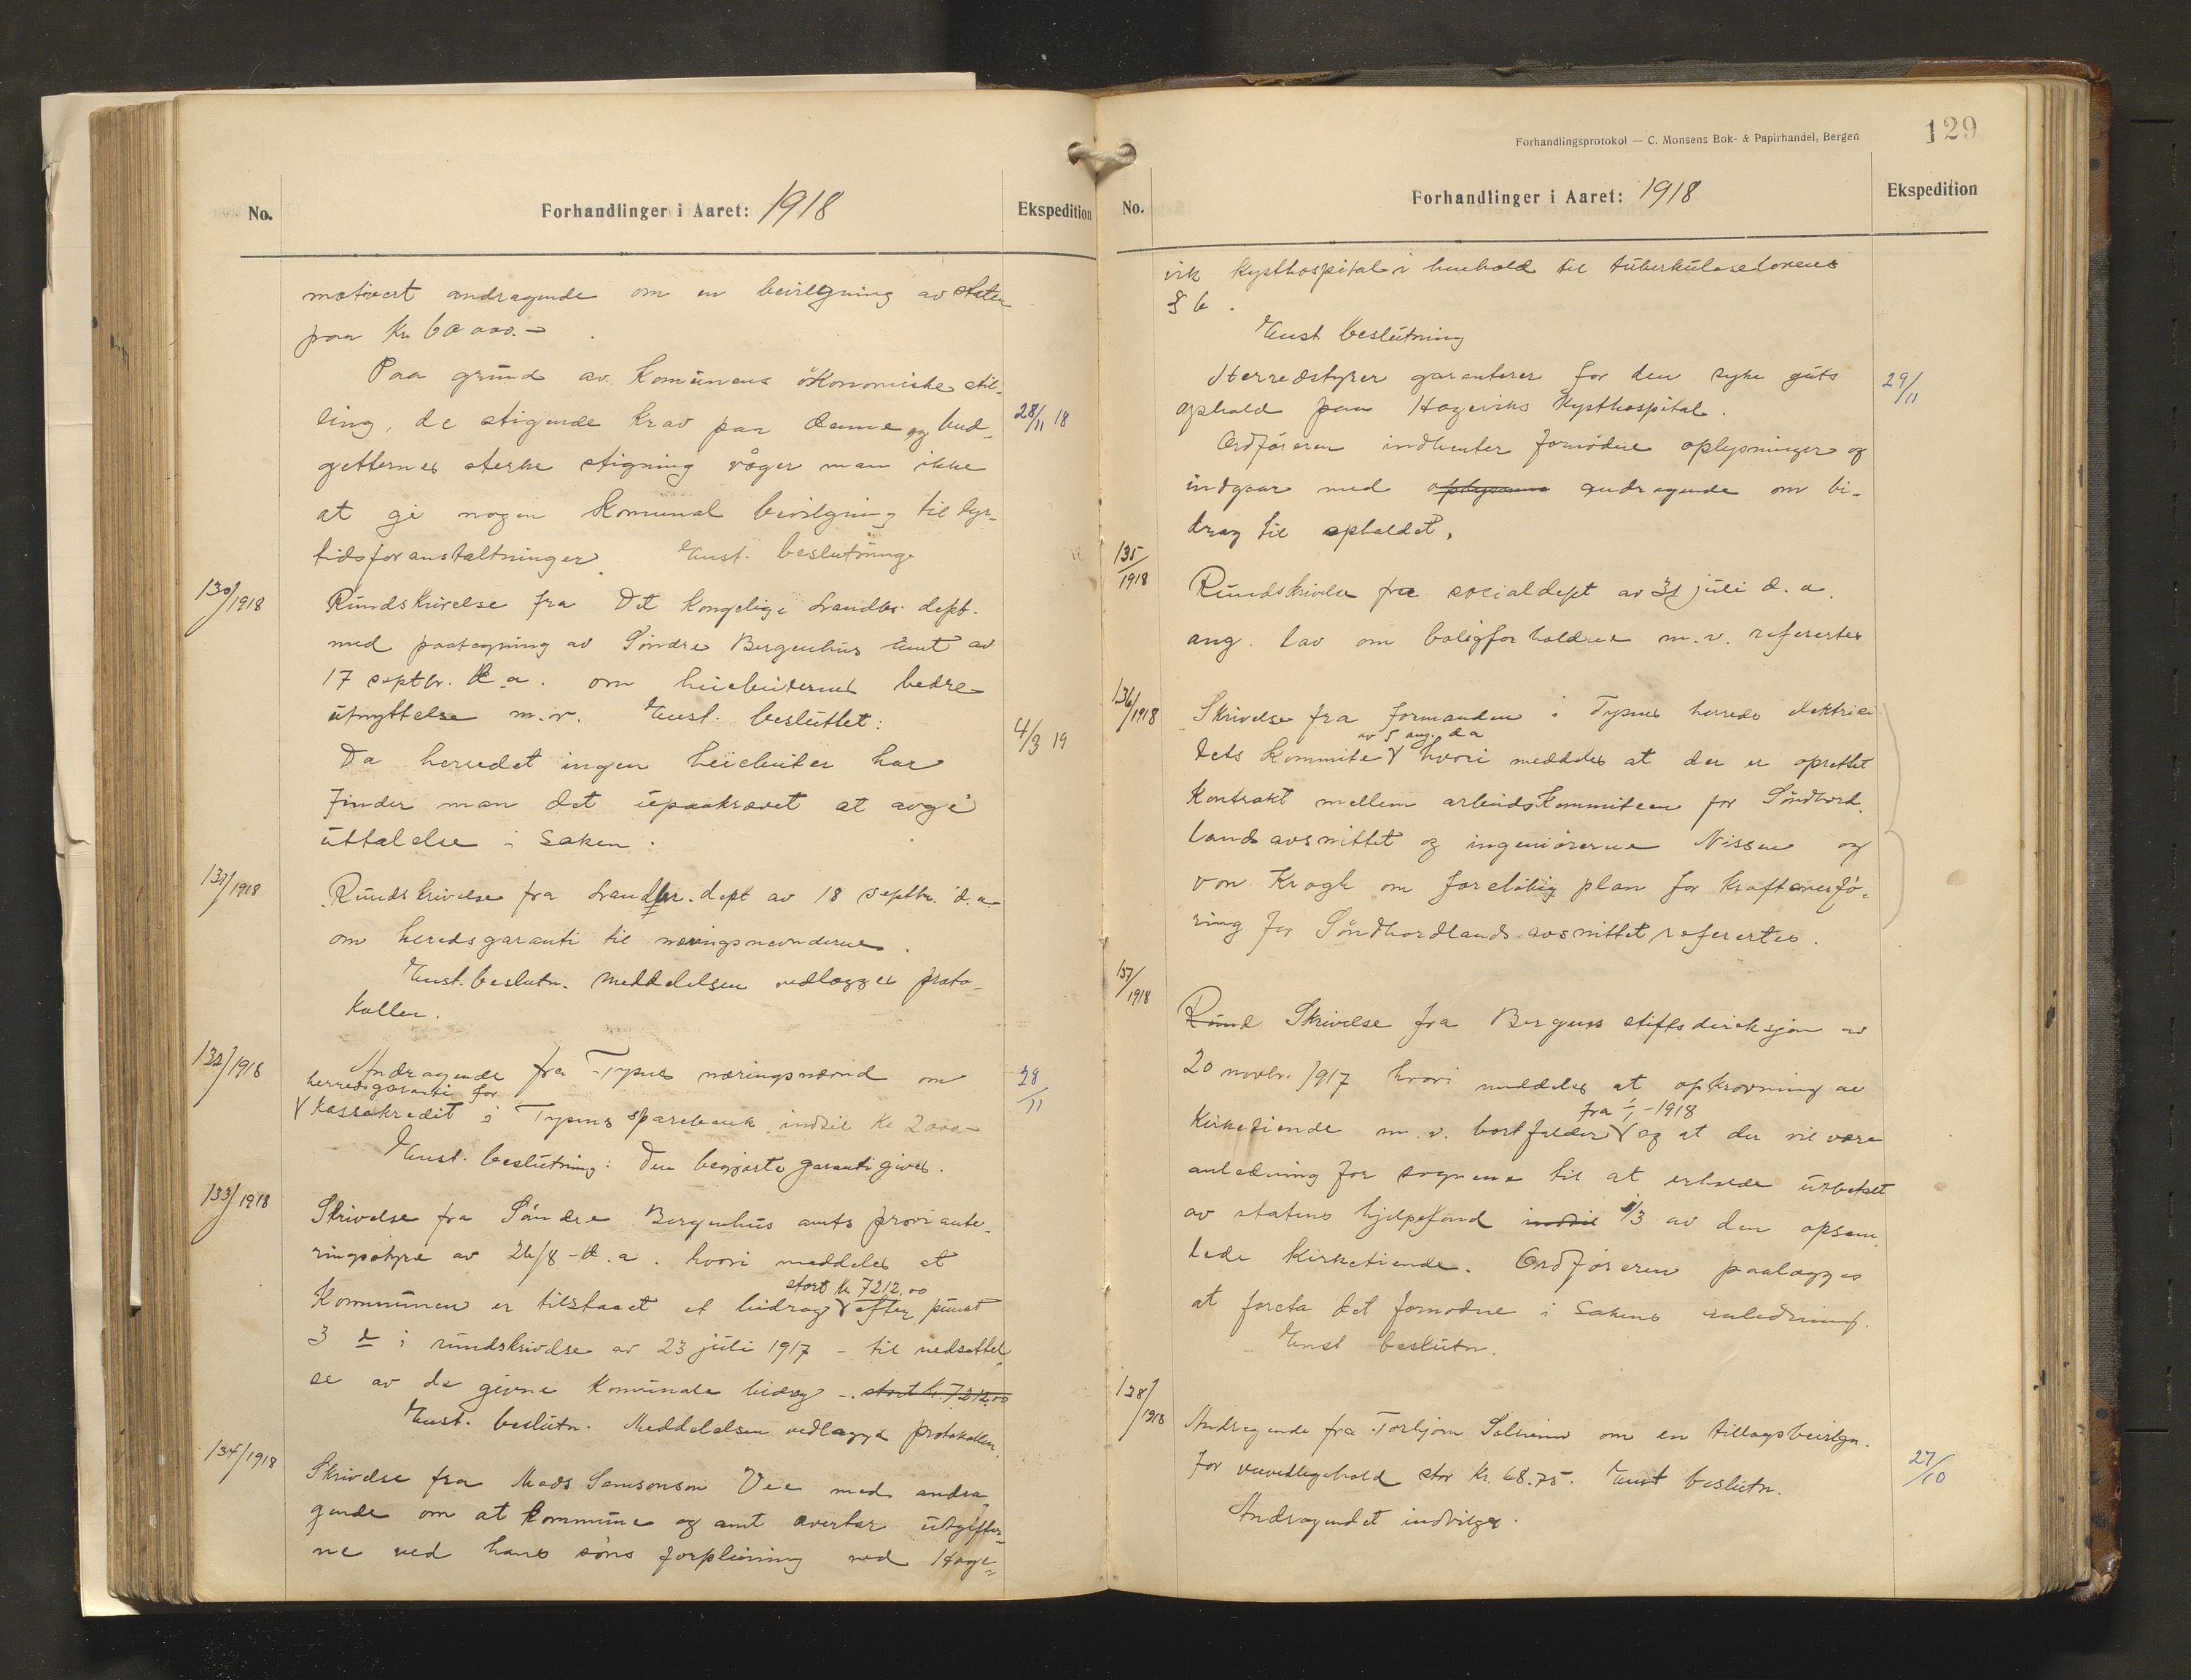 No.
Forhandlinger i Aaret: 1918
Ekspedition
motivert andragende om en bevilgning av staten
paa Kr. 60 000.–
Paa grund av Komunens økonomiske stil-
ling, de stigende krav paa denne og bud-
28/11 18
getternes sterke stigning våger man ikke
at gi nogen Komunal bevilgning til dyr-
tidsforanstaltninger. Enst. beslutning
130/1918
Rundskrivelse fra Det kongelige Landbr. dept.
med paategning av Söndre Bergenhus amt av
17 septbr. d.a. om heiebeiternes bedre
utnyttelse m.v. Enst. besluttet:
4/3 19
Da herredet ingen heiebeiter har
finder man det upaakrævet at avgi
uttalelse i saken.
131/1918
Rundskrivelse fra Landbr. dept av 18 septbr. d.a
om heredsgaranti til næringsnevnderne.
Enst. beslutn. Meddelelsen vedlægges proto-
kollen.
132/1918
Andragende fra Tysnes næringsnævnd om
28/11
herredsgaranti for
kassakredit i Tysnes sparebank indtil Kr 2000–
Enst. beslutning: Den begjærte garanti gives.
133/1918
Skrivelse fra Söndre Bergenhus amts proviante-
ringsstyre av 26/8 - d.a. hvori meddeles at
stort kr. 7212.00
Kommunen er tilstaaet et bidrag efter punkt
3 i rundskrivelse av 23 juli 1917 – til nedsettel-
se av de givne Komunale bidrag – stort kr. 7212.00
Enst. beslutn. Meddelelsen vedlægges protokollen.
134/1918
Skrivelse fra Mads Samsonson Vee med andra-
gende om at kommune og amt overtar utgifter-
ne ved hans söns forpleining ved Hage-
Forhandlingsprotokol — C. Monsens Bok- & Papirhandel, Bergen
129
No.
Forhandlinger i Aaret: 1918
Ekspedition
vik Kysthospital i henhold til tuberkuloselovens
§ 6.
Enst beslutning
Herredstyret garanterer for den syke guts
29/11
ophold paa Hageviks Kysthospital.
Ordföreren indhenter fornödne oplysninger og
indgaar med andragende om bi-
drag til opholdet.
135/1918
Rundskrivelse fra socialdept av 31 juli d.a.
ang. lov om boligforholdene m.v. refertes
136/1918
Skrivelse fra formanden i Tysnes herreds elektrici
av 5 aug. d a
tets Kommite hvori meddeles at der er oprettet
Kontrakt mellem arbeidsKommiteen for Söndhord.
lands avsnittet og ingeniörerne Nissen og
von Krogh om forelöbig plan for kraftoverfö-
ring for Söndhordlands avsnittet refertes.
137/1918
Rund Skrivelse fra Bergens stiftsdireksjon av
20 novbr. 1917 hvori meddeles at opkrævning av
fra 1/1 - 1918
Kirketiende m.v. bortfalder og at der vil være
anledning for sognene til at erholde utbetalt
av statens hjelpefond indtil 1/3 av den opsam-
lede Kirketiende. Ordföreren paalægges
at foreta det fornødne i sakens anledning.
Enst beslutn.
138/1918
Andragende fra Torbjørn Solheim om en tillægsbevilgn.
for veivedligehold stor Kr. 68.75. Enst beslutn.
27/10
Andragendet indvilges.